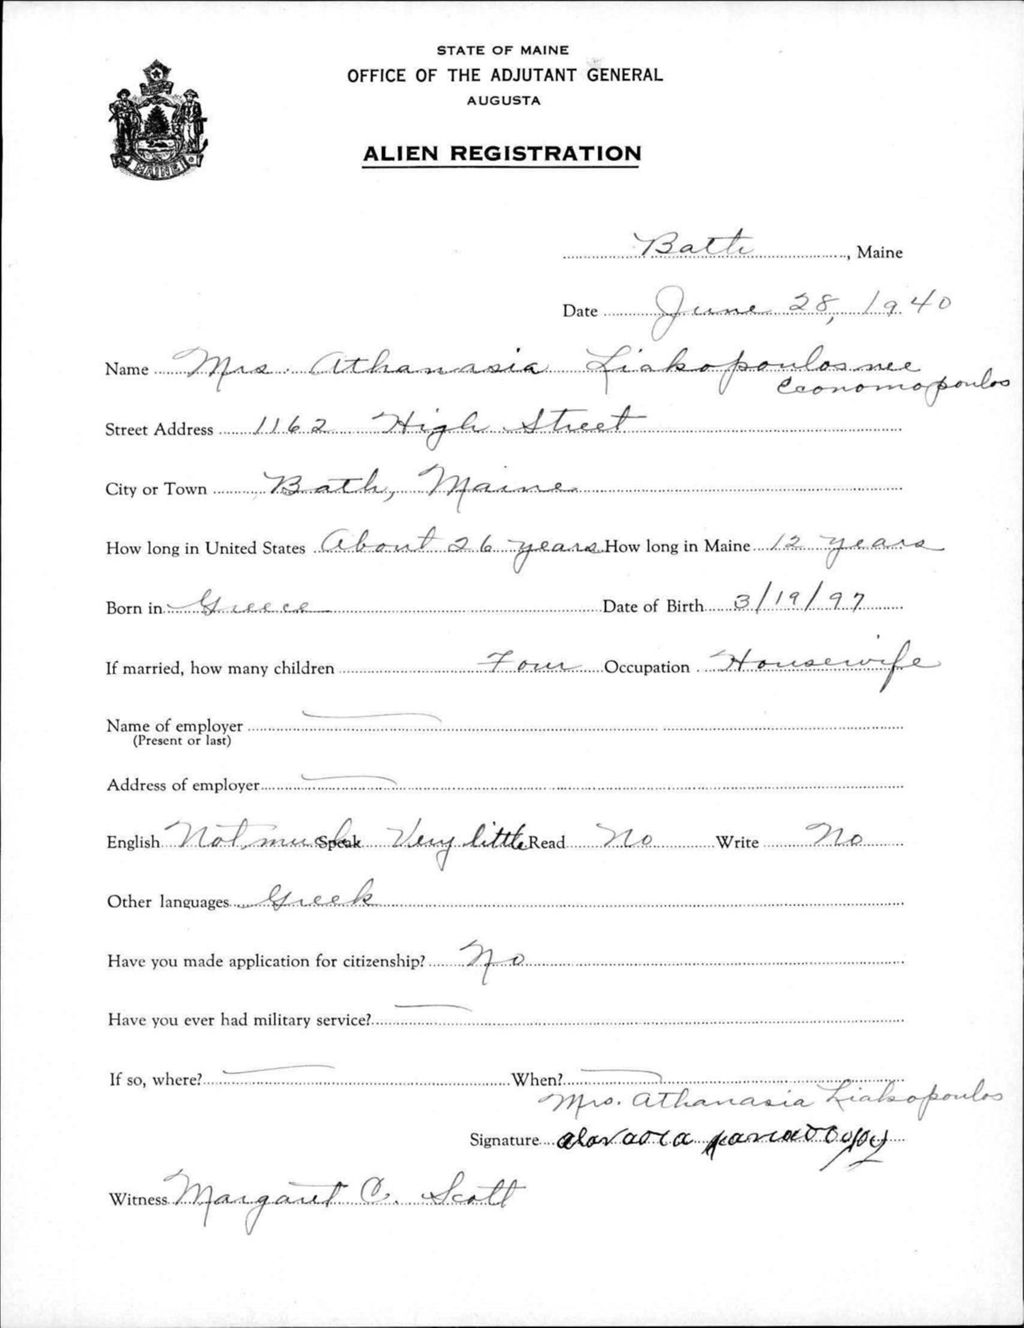 STATE OF MAINE
OFFICE OF THE ADJUTANT GENERAL
AUGUSTA
ALIEN REGISTRATION
MAINE
Bath, Maine
Date June 28, 1940
Name Mrs. Athanasia Liakopoulos nee
Economopoulos
Street Address 1162 High Street
City or Town Bath, Maine
How long in United States About 26 years How long in Maine 12 years
Born in Greece Date of Birth 3/19/97
If married, how many children Four Occupation Housewife
Name of employer
(Present or last)
Address of employer
English Not much Speak Very little Read No Write No
Other languages Greek
Have you made application for citizenship? No
Have you ever had military service?
If so, where? When?
Mrs. Athanasia Liakopoulos
Signature
Witness Margaret C. Scott